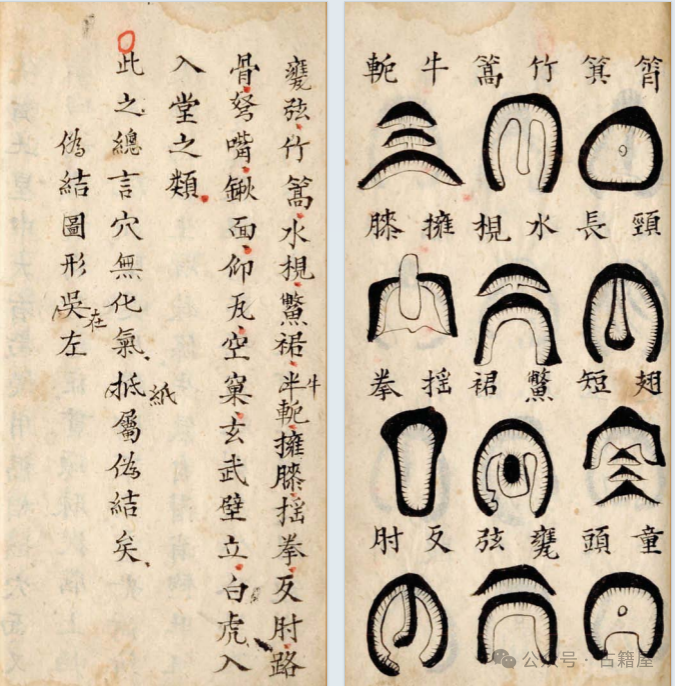 筲箕竹篙牛軛
頸長水梘擁膝
翅短鱉裙揺拳
童頭甕弦反肘
甕弦竹篙水梘鱉裙斗軛擁膝揺拳反肘路
牛
骨弩嘴鍬面仰瓦空窠玄武壁立白虎入
入堂之類
此之總言穴無化氣抵屬偽結矣
紙
偽結圖形吳左
在
公众号·古籍屋